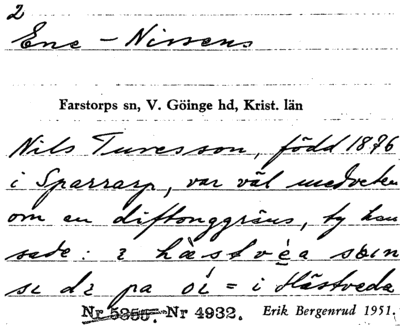 2
Ene - Nissens
Farstorps sn, V. Göinge hd, Krist. län
Nils Turesson, född 1876
i Sparrarp, var väl medveten
om en diftonggräns, ty han
sade: i hàstvéa
pa oi = i Hästveda
Nr 5355. Nr 4932. Erik Bergenrud 1951.